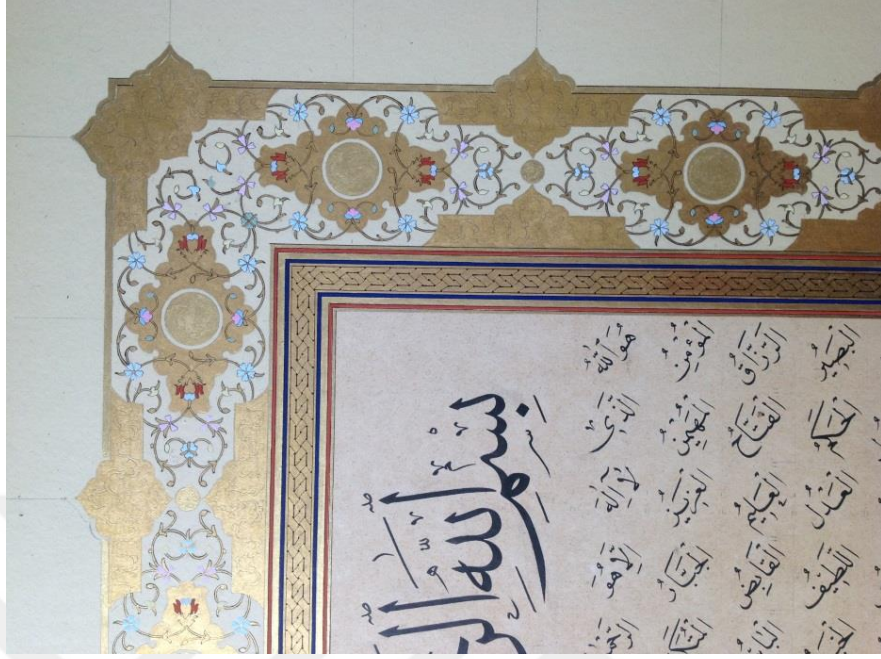 بِسْمِ اللهِ
هُوَ اللهُ الَّذِي لَا إِلٰهَ إِلَّا هُوَ
الْمُؤْمِنُ الْمُهَيْمِنُ الْعَزِيزُ الْجَبَّارُ
الرَّزَّاقُ الْفَتَّاحُ الْعَلِيمُ الْقَابِضُ
الْبَصِيرُ الْحَكَمُ الْعَدْلُ اللَّطِيفُ